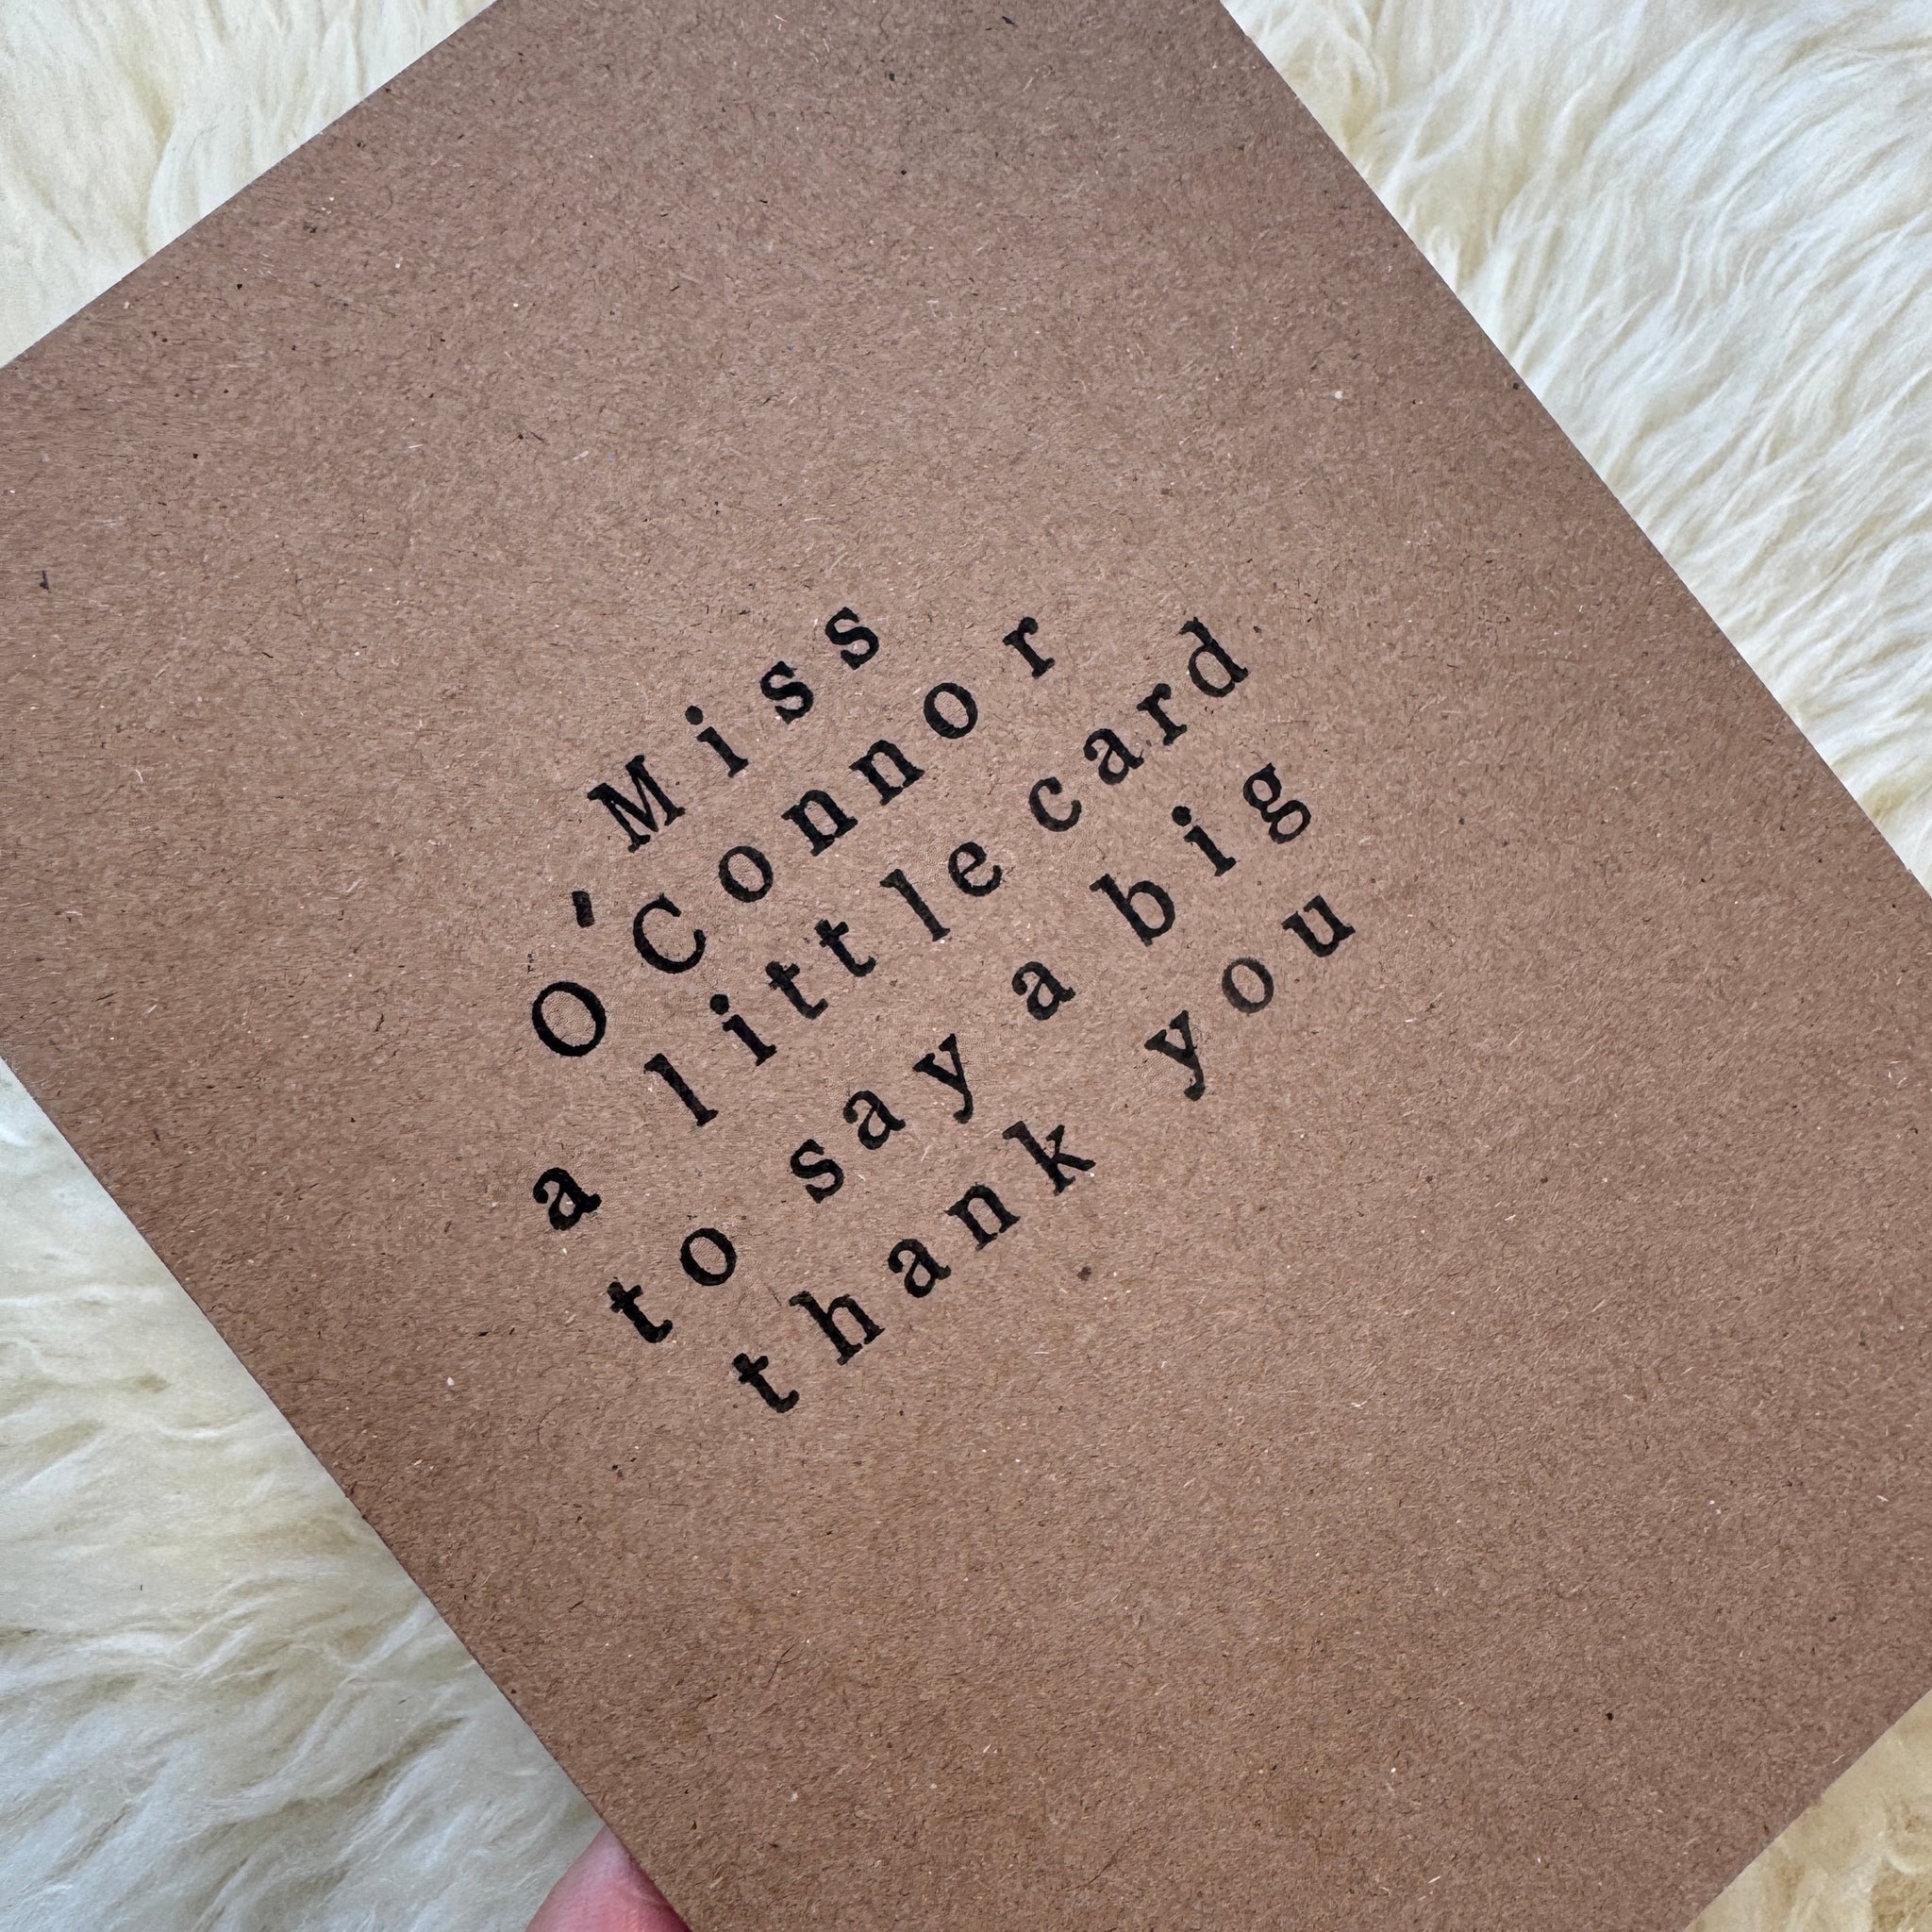 Miss
O'Connor
a little card
to say a big
thank you